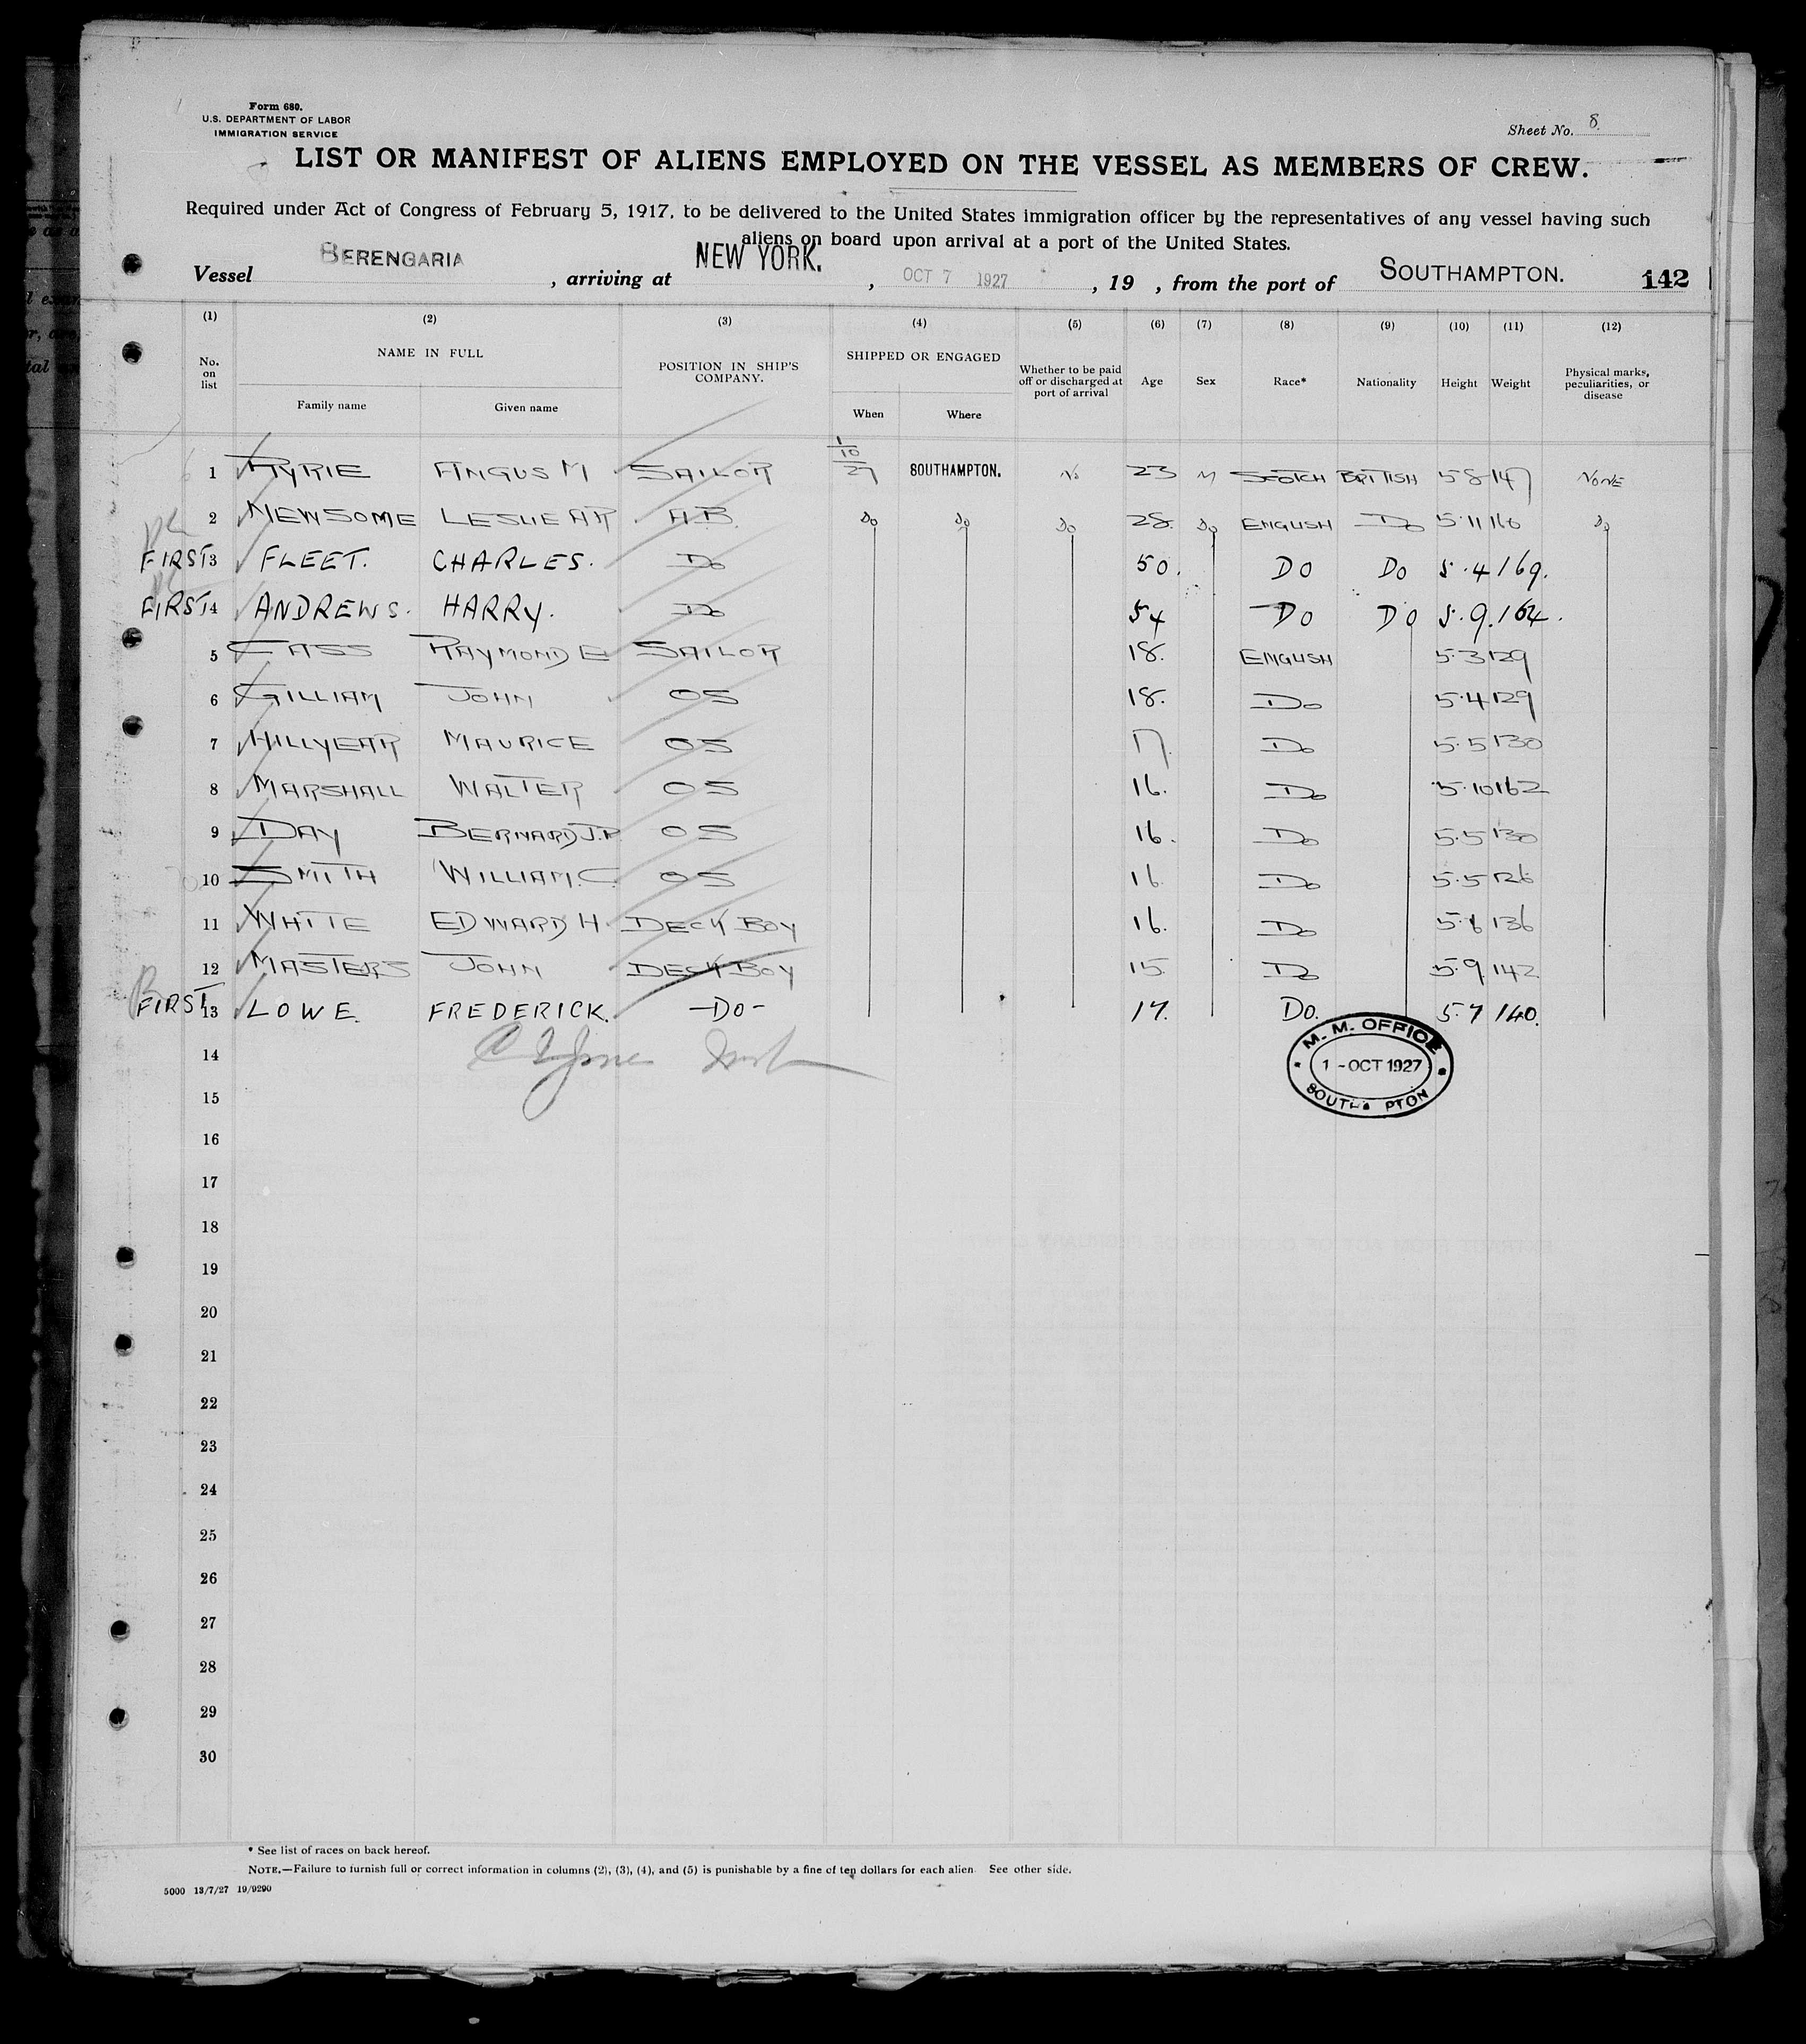 Form 680.
U.S. DEPARTMENT OF LABOR
IMMIGRATION SERVICE
Sheet No. 8.
LIST OR MANIFEST OF ALIENS EMPLOYED ON THE VESSEL AS MEMBERS OF CREW.
Required under Act of Congress of February 5, 1917, to be delivered to the United States immigration officer by the representatives of any vessel having such
aliens on board upon arrival at a port of the United States.
Vessel BERENGARIA, arriving at NEW YORK., OCT 7 1927, 19 , from the port of SOUTHAMPTON. 142
(1) (2) (3) (4) (5) (6) (7) (8) (9) (10) (11) (12)
No. on list NAME IN FULL POSITION IN SHIP'S COMPANY. SHIPPED OR ENGAGED Whether to be paid off or discharged at port of arrival Age Sex Race* Nationality Height Weight Physical marks, peculiarities, or disease
Family name Given name When Where
1 RYRIE ANGUS M SAILOR 1/10/27 SOUTHAMPTON. No 23 M SCOTCH BRITISH 5 8 147 NONE
2 NEWSOME LESLIE AR A.B. Do Do Do 28. Do ENGLISH Do 5.11 160 Do
FIRST 3 FLEET. CHARLES. Do 50. DO DO 5.4 169.
FIRST 4 ANDREWS. HARRY. Do 54 DO DO 5.9. 164.
5 CASS RAYMOND E SAILOR 18. ENGLISH 5.3 129
6 GILLIAM JOHN OS 18. Do 5.4 129
7 HILLYEAR MAURICE OS 17. Do 5.5 130
8 MARSHALL WALTER OS 16. Do 5.10 162
9 DAY BERNARD J.P OS 16. Do 5.5 130
10 SMITH WILLIAM.C. OS 16. Do 5.5 126
11 WHITE EDWARD H. DECK BOY 16. Do 5.6 136
12 MASTERS JOHN DECK BOY 15. Do 5.9 142
FIRST 13 LOWE. FREDERICK. -DO- 17. DO. 5.7 140.
14
M. M. OFFICE
1-OCT 1927
SOUTH PTON
15
16
17
18
19
20
21
22
23
24
25
26
27
28
29
30
* See list of races on back hereof.
NOTE.—Failure to furnish full or correct information in columns (2), (3), (4), and (5) is punishable by a fine of ten dollars for each alien. See other side.
5000 13/7/27 19/9290